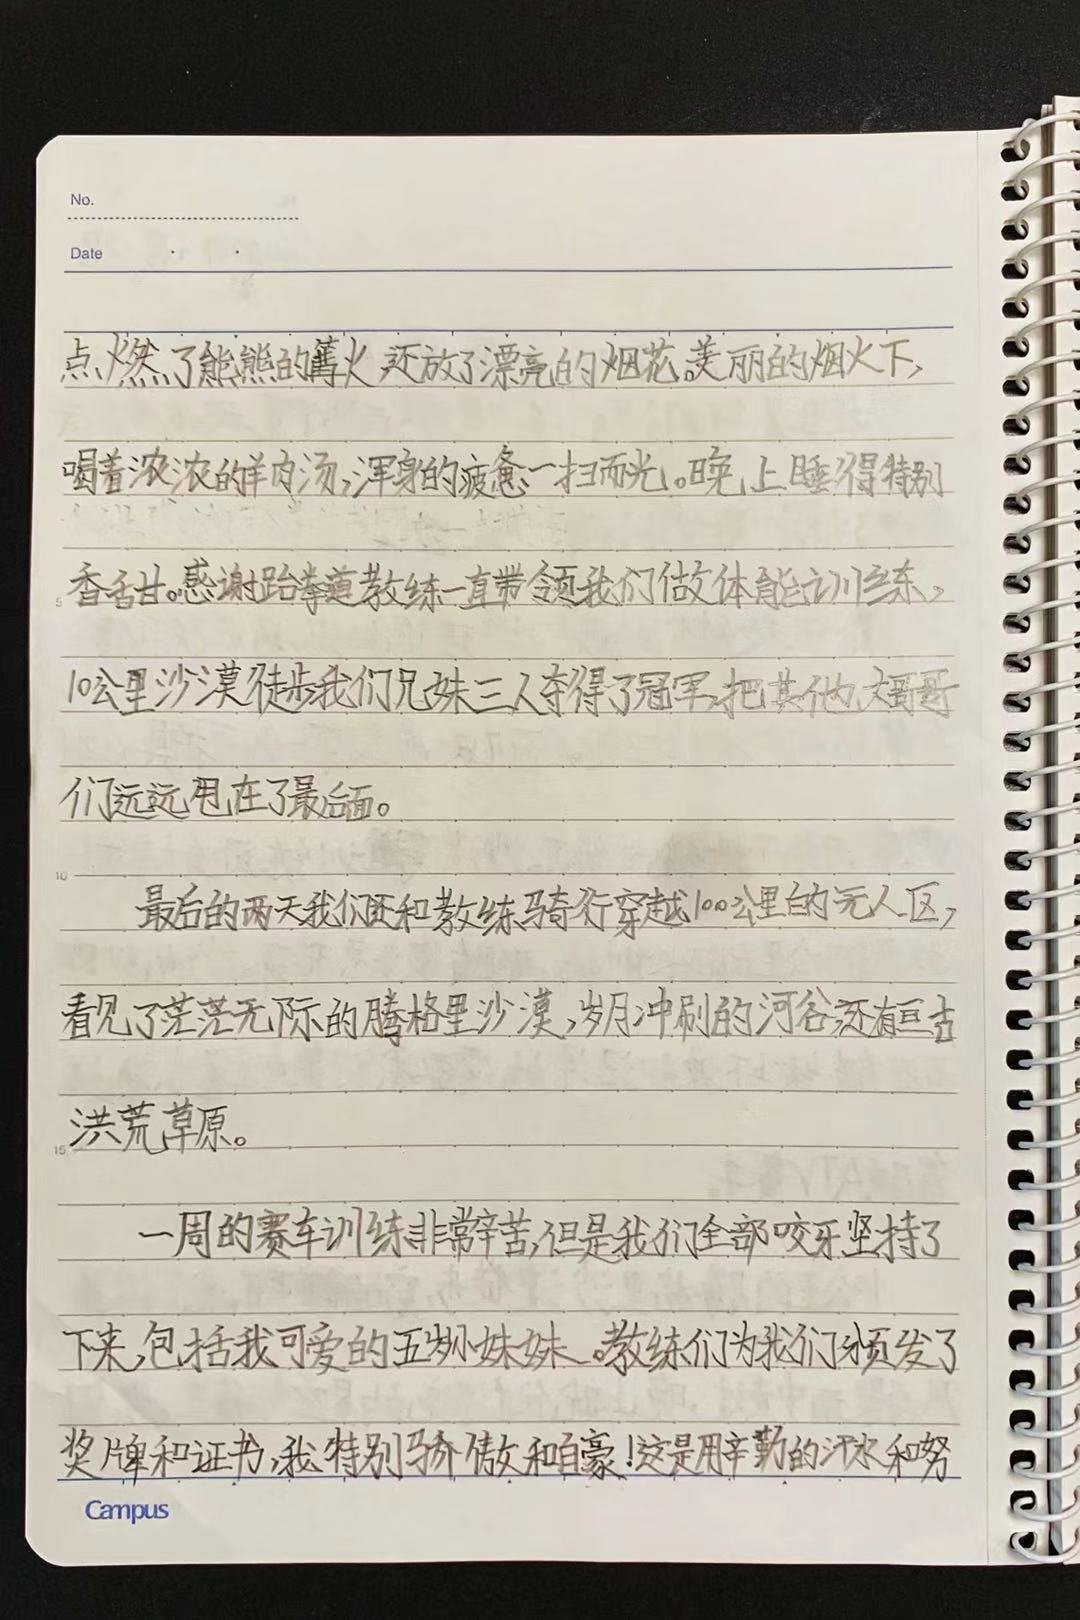 No.
Date
点燃了熊熊的篝火还放了漂亮的烟花。美丽的烟火下，
喝着浓浓的羊肉汤，浑身的疲惫一扫而光。晚上睡得特别
香香甘。感谢跆拳道教练一直带领我们做体能训练，
10公里沙漠徒步我们兄妹三人夺得了冠军，把其他大哥哥
们远远甩在了最后面。
10
最后的两天我们还和教练骑行穿越100公里的无人区，
看见了茫茫无际的腾格里沙漠，岁月冲刷的河谷还有亘古
洪荒草原。
15
一周的赛车训练非常辛苦，但是我们全部咬牙坚持了
下来，包括我可爱的五岁小妹妹。教练们为我们颁发了
奖牌和证书，我特别骄傲和自豪！这是用辛勤的汗水和努
Campus